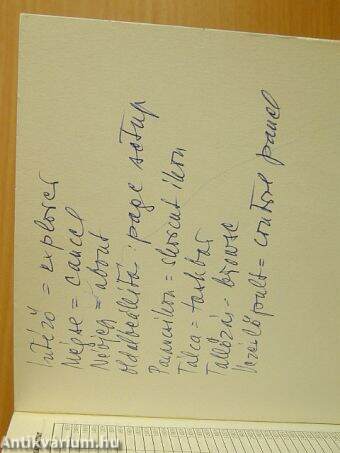 Intéző = explorer
Mégse = cancel
Névjegy = about
oldalbeállítá : page setup
Parancsikon = shorcut ikon
Tálca = taskbar
Tallózás = browse
Vezérlőpult = control panel
Antikvarium.hu